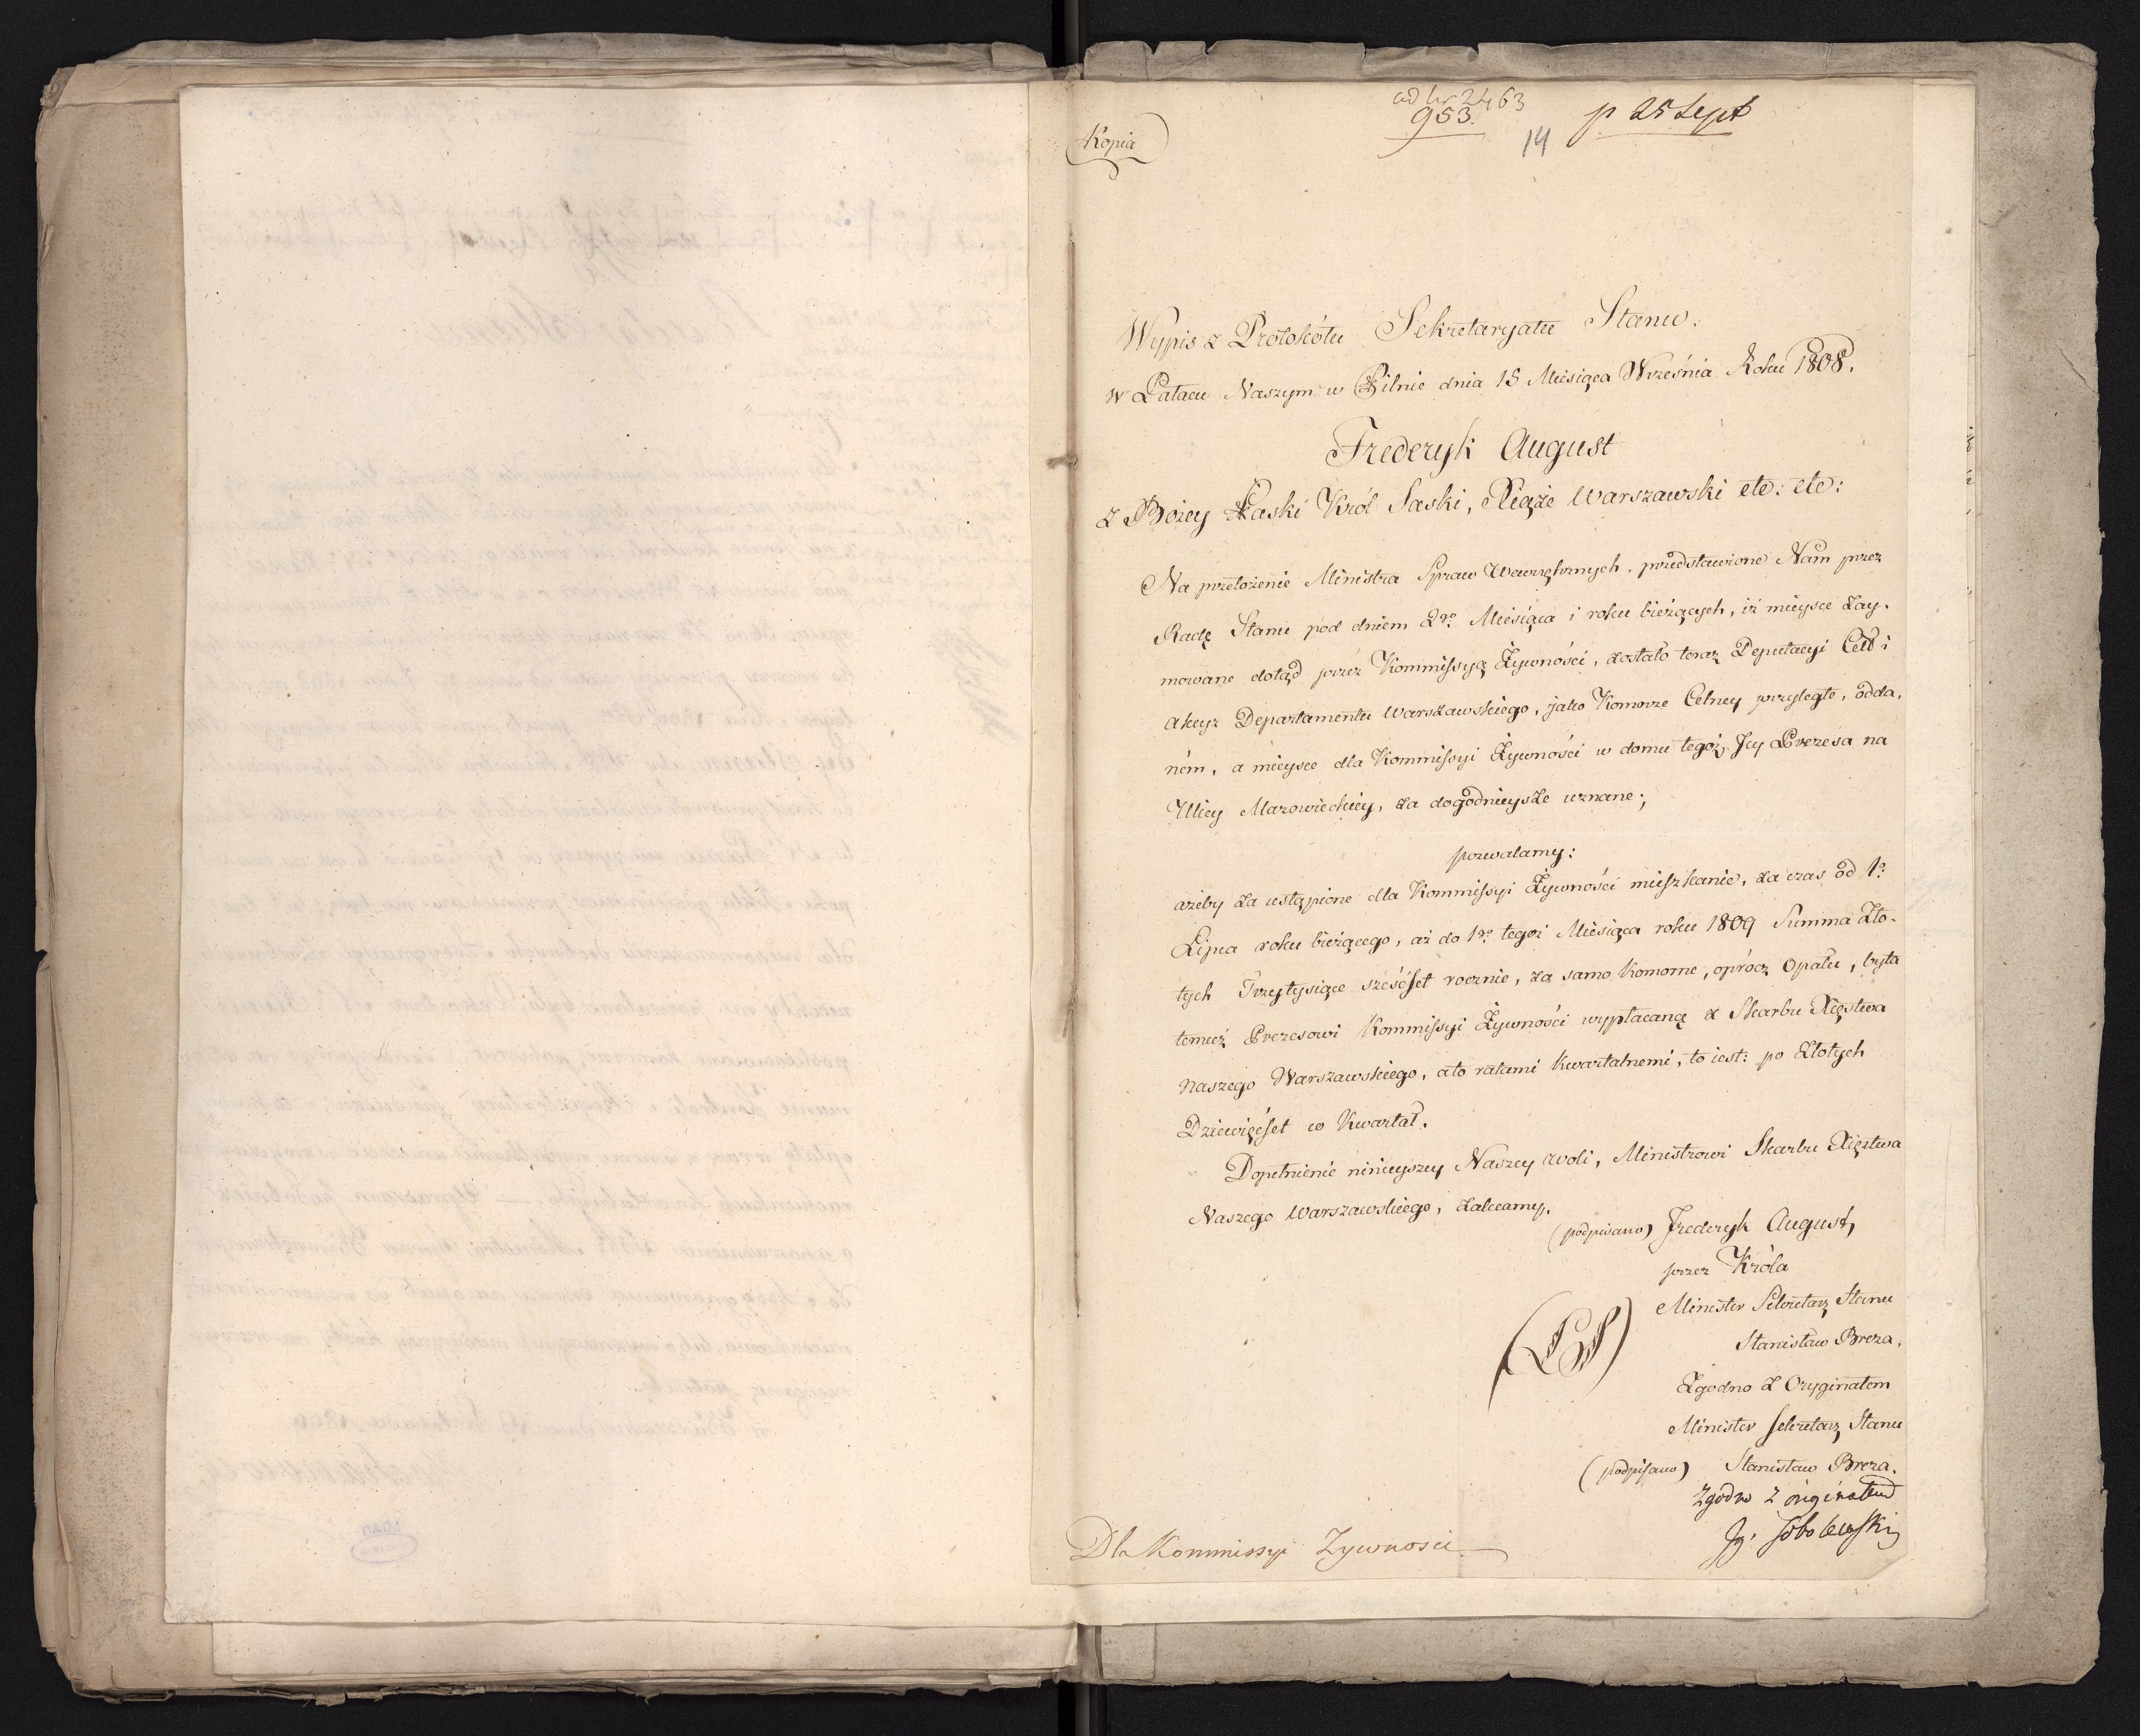 ad Nr 2463
953.
p 25 Sept
14
Kopia
Wypis z Protokółu Sekretaryatu Stanu.
w Pałacu Naszym w Pilnie dnia 15 Miesiąca Września Roku 1808.
Frederyk August
z Bożey Łaski Król Saski, Xiąże Warszawski etc: etc:
Na przełożenie Ministra Spraw Wewnętrznych, przedstawione Nam przez
Radę Stanu pod dniem 2go Miesiąca i roku bieżących, iż mieysce zay-
mowane dotąd przez Kommissyą Żywności, zostało teraz Deputacyi Ceł i
akcyz Departamentu Warszawskiego, jako Komorze Celney przyległe, odda-
ném, a mieysce dla Kommissyi Żywności w domu tegoż Jey Prezesa na
Ulicy Mazowieckiey, za dogodnieysze uznane;
pozwalamy:
ażeby za ustąpione dla Kommissyi Żywności mieszkanie, za czas od 1o
Lipca roku bieżącego, aż do 1go tegoż Miesiąca roku 1809 Summa Zło-
tych Trzytysiące sześćset rocznie, za samo Komorne, oprócz Opału, była
temuż Prezesowi Kommissyi Żywności wypłacaną z Skarbu Xięstwa
Naszego Warszawskiego, ato ratami kwartalnemi, to iest: po Złotych
Dziewięćset w Kwartał.
Dopełnienie ninieyszey Naszey woli, Ministrowi Skarbu Xięstwa
Naszego Warszawskiego, zalecamy.
(podpisano) Frederyk August,
przez Króla
Minister Sekretarz Stanu
Stanisław Breza.
(LS)
Zgodno z Oryginałem
Minister Sekretarz Stanu
(podpisano) Stanisław Breza.
Zgodno z originałem
Ig. Sobolewski
Dla Kommissyi Zywnosci